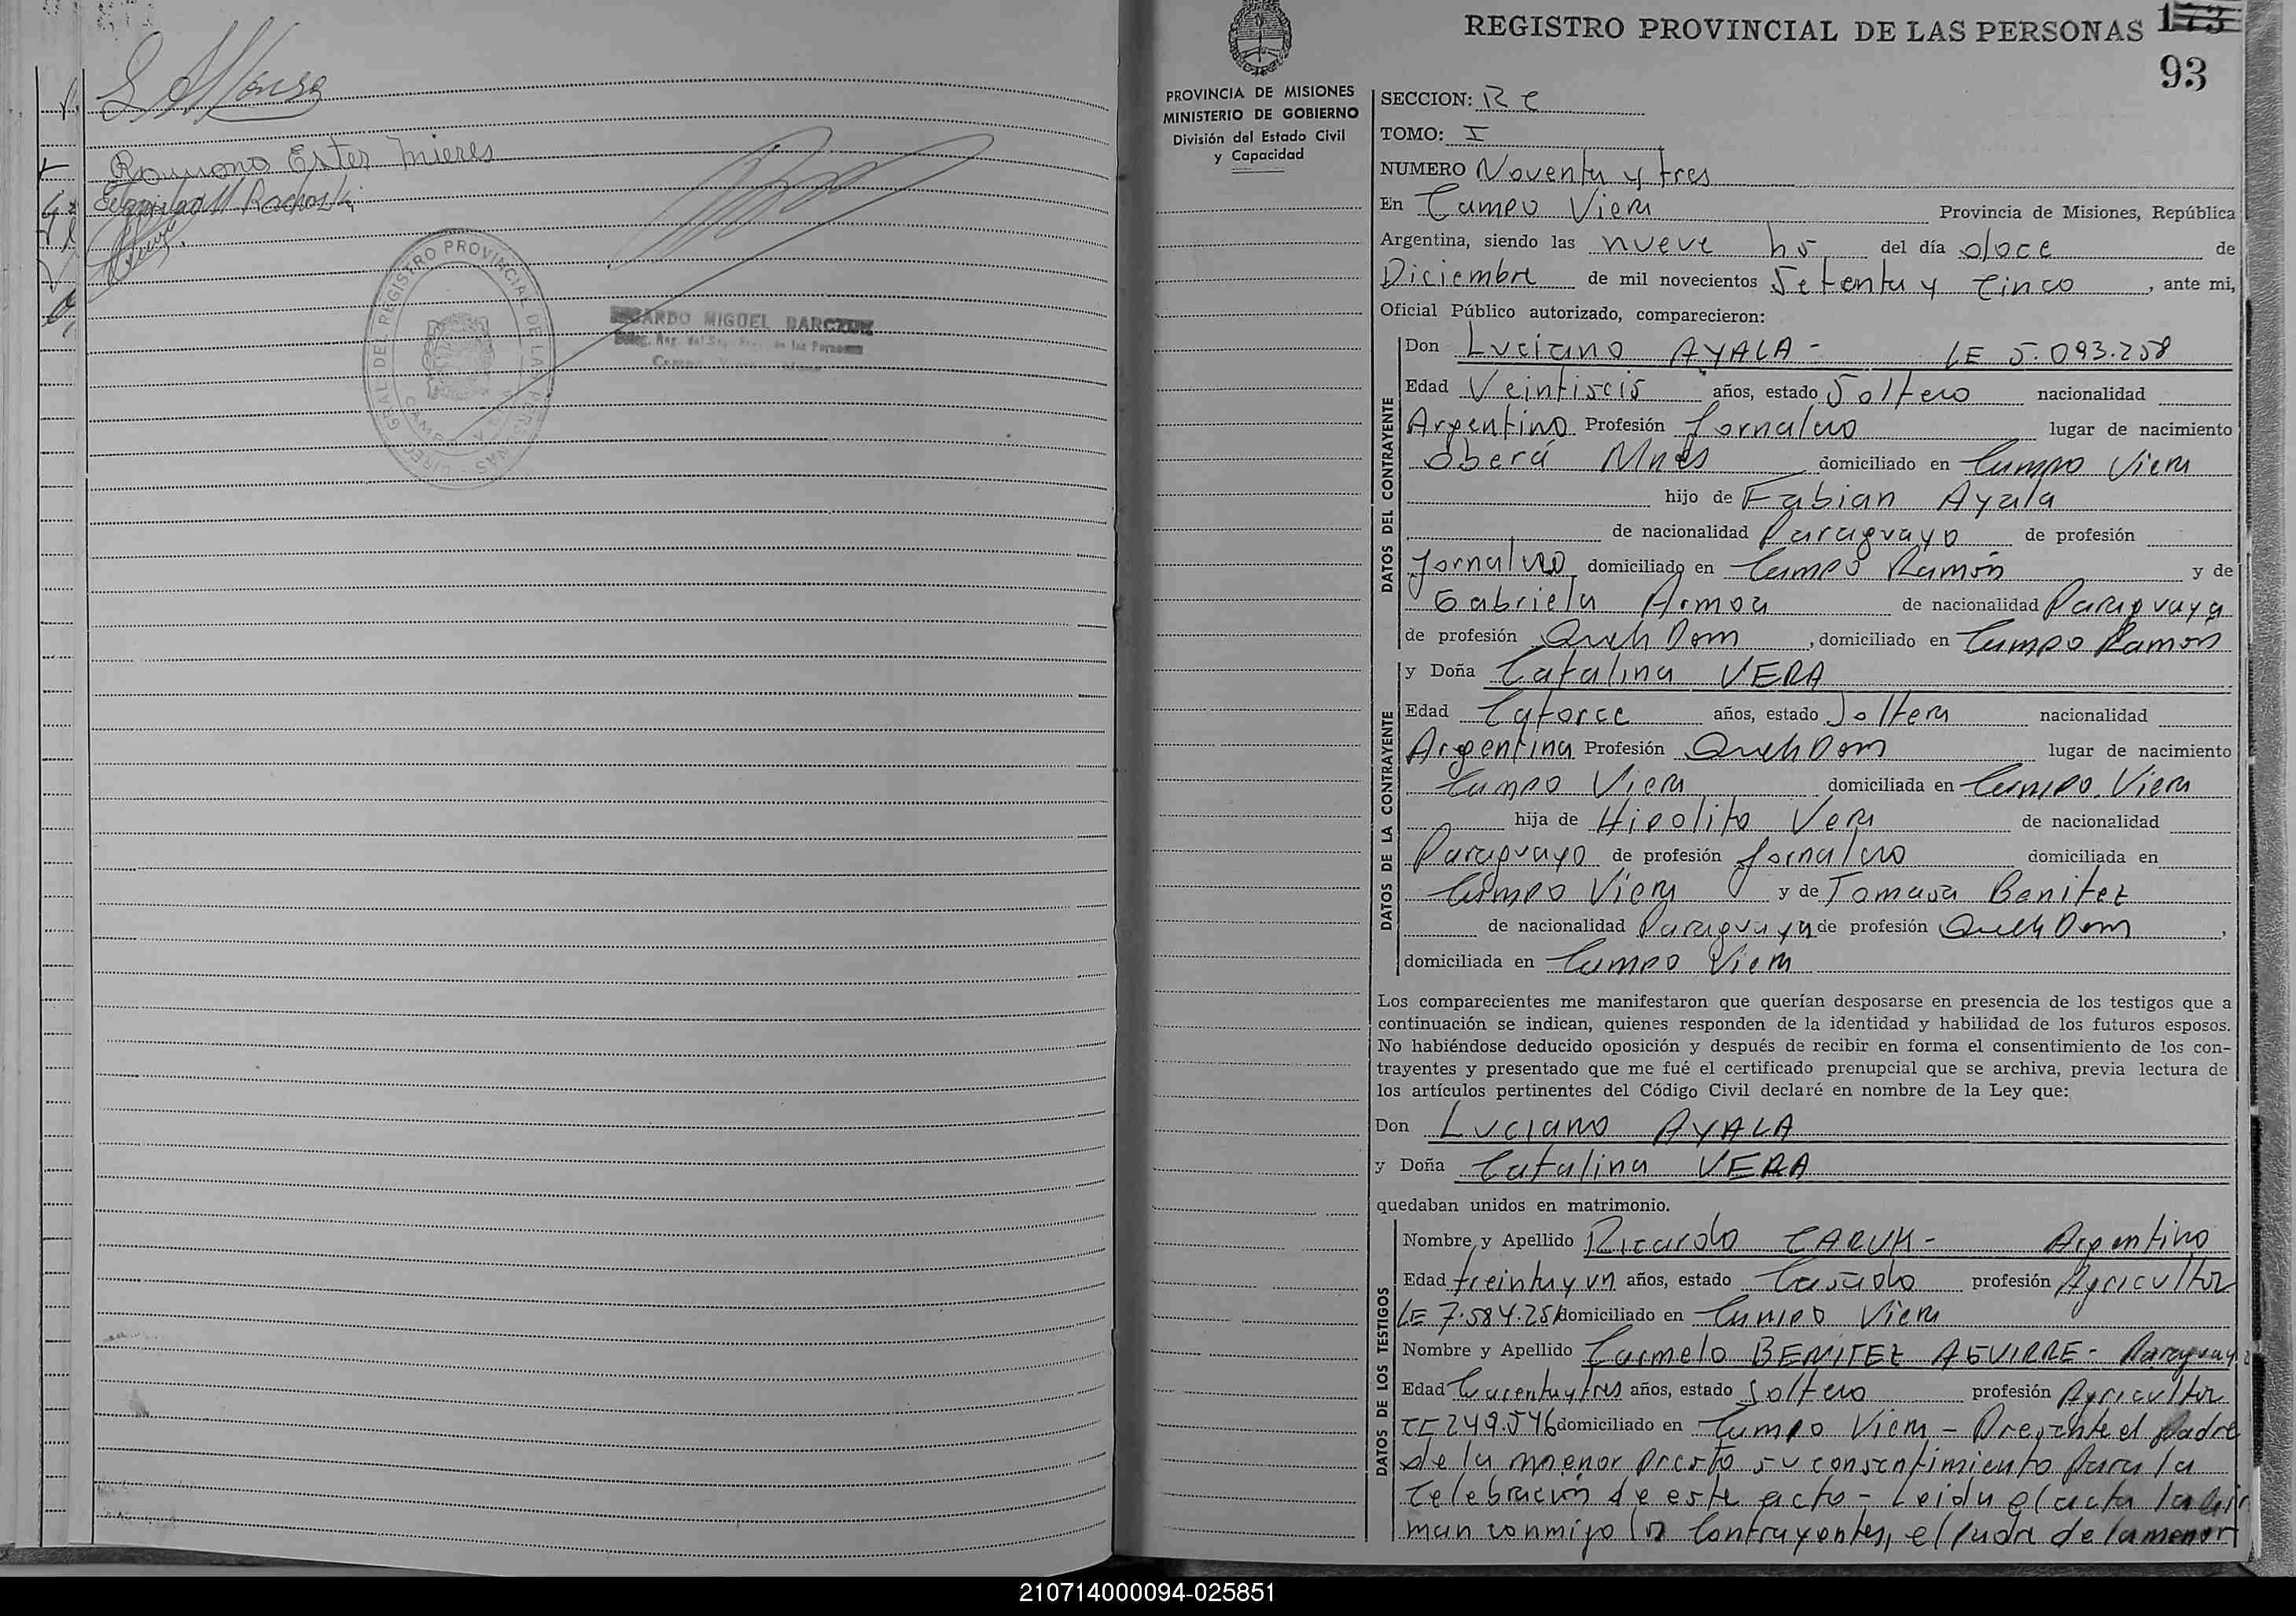 E Alfonso
Ramona Ester Mieres
DIREC. GRAL DEL REGISTRO PROVINCIAL DE LAS PERSONAS
RICARDO MIGUEL BARCZUK
REGISTRO PROVINCIAL DE LAS PERSONAS 173
93
PROVINCIA DE MISIONES
MINISTERIO DE GOBIERNO
División del Estado Civil
y Capacidad
SECCION: R e
TOMO: I
NUMERO Noventa y tres
En Campo Viera Provincia de Misiones, República
Argentina, siendo las nueve hs del día doce de
Diciembre de mil novecientos Setenta y Cinco, ante mi,
Oficial Público autorizado, comparecieron:
DATOS DEL CONTRAYENTE
Don Luciano AYALA - LE 5.093.258
Edad Veintiseis años, estado Soltero nacionalidad
Argentino Profesión Jornalero lugar de nacimiento
Oberá Mnes domiciliado en Campo Viera
hijo de Fabian Ayala
de nacionalidad Paraguayo de profesión
Jornalero domiciliado en Campo Ramón y de
Gabriela Armoa de nacionalidad Paraguaya
de profesión Queh Dom, domiciliado en Campo Ramon
DATOS DE LA CONTRAYENTE
y Doña Catalina VERA
Edad Catorce años, estado Soltera nacionalidad
Argentina Profesión Queh Dom lugar de nacimiento
Campo Viera domiciliada en Campo Viera
hija de Hipolito Vera de nacionalidad
Paraguayo de profesión Jornalero domiciliada en
Campo Viera y de Tomasa Benitez
de nacionalidad Paraguaya de profesión Queh Dom,
domiciliada en Campo Viera
Los comparecientes me manifestaron que querían desposarse en presencia de los testigos que a
continuación se indican, quienes responden de la identidad y habilidad de los futuros esposos.
No habiéndose deducido oposición y después de recibir en forma el consentimiento de los con-
trayentes y presentado que me fué el certificado prenupcial que se archiva, previa lectura de
los artículos pertinentes del Código Civil declaré en nombre de la Ley que:
Don Luciano AYALA
y Doña Catalina VERA
quedaban unidos en matrimonio.
DATOS DE LOS TESTIGOS
Nombre y Apellido Ricardo CARUK - Argentino
Edad treinta y un años, estado Casado profesión Agricultor
LE 7.584.251 domiciliado en Campo Viera
Nombre y Apellido Carmelo BENITEZ AGUIRRE - Paraguayo
Edad Cuarenta y tres años, estado Soltero profesión Agricultor
CI 249.546 domiciliado en Campo Viera - Presente el Padre
de la menor presto su consentimiento para la
Celebracion de este acto - Leida el acta la fir
man conmigo los Contrayentes, el padre de la menor
210714000094-025851